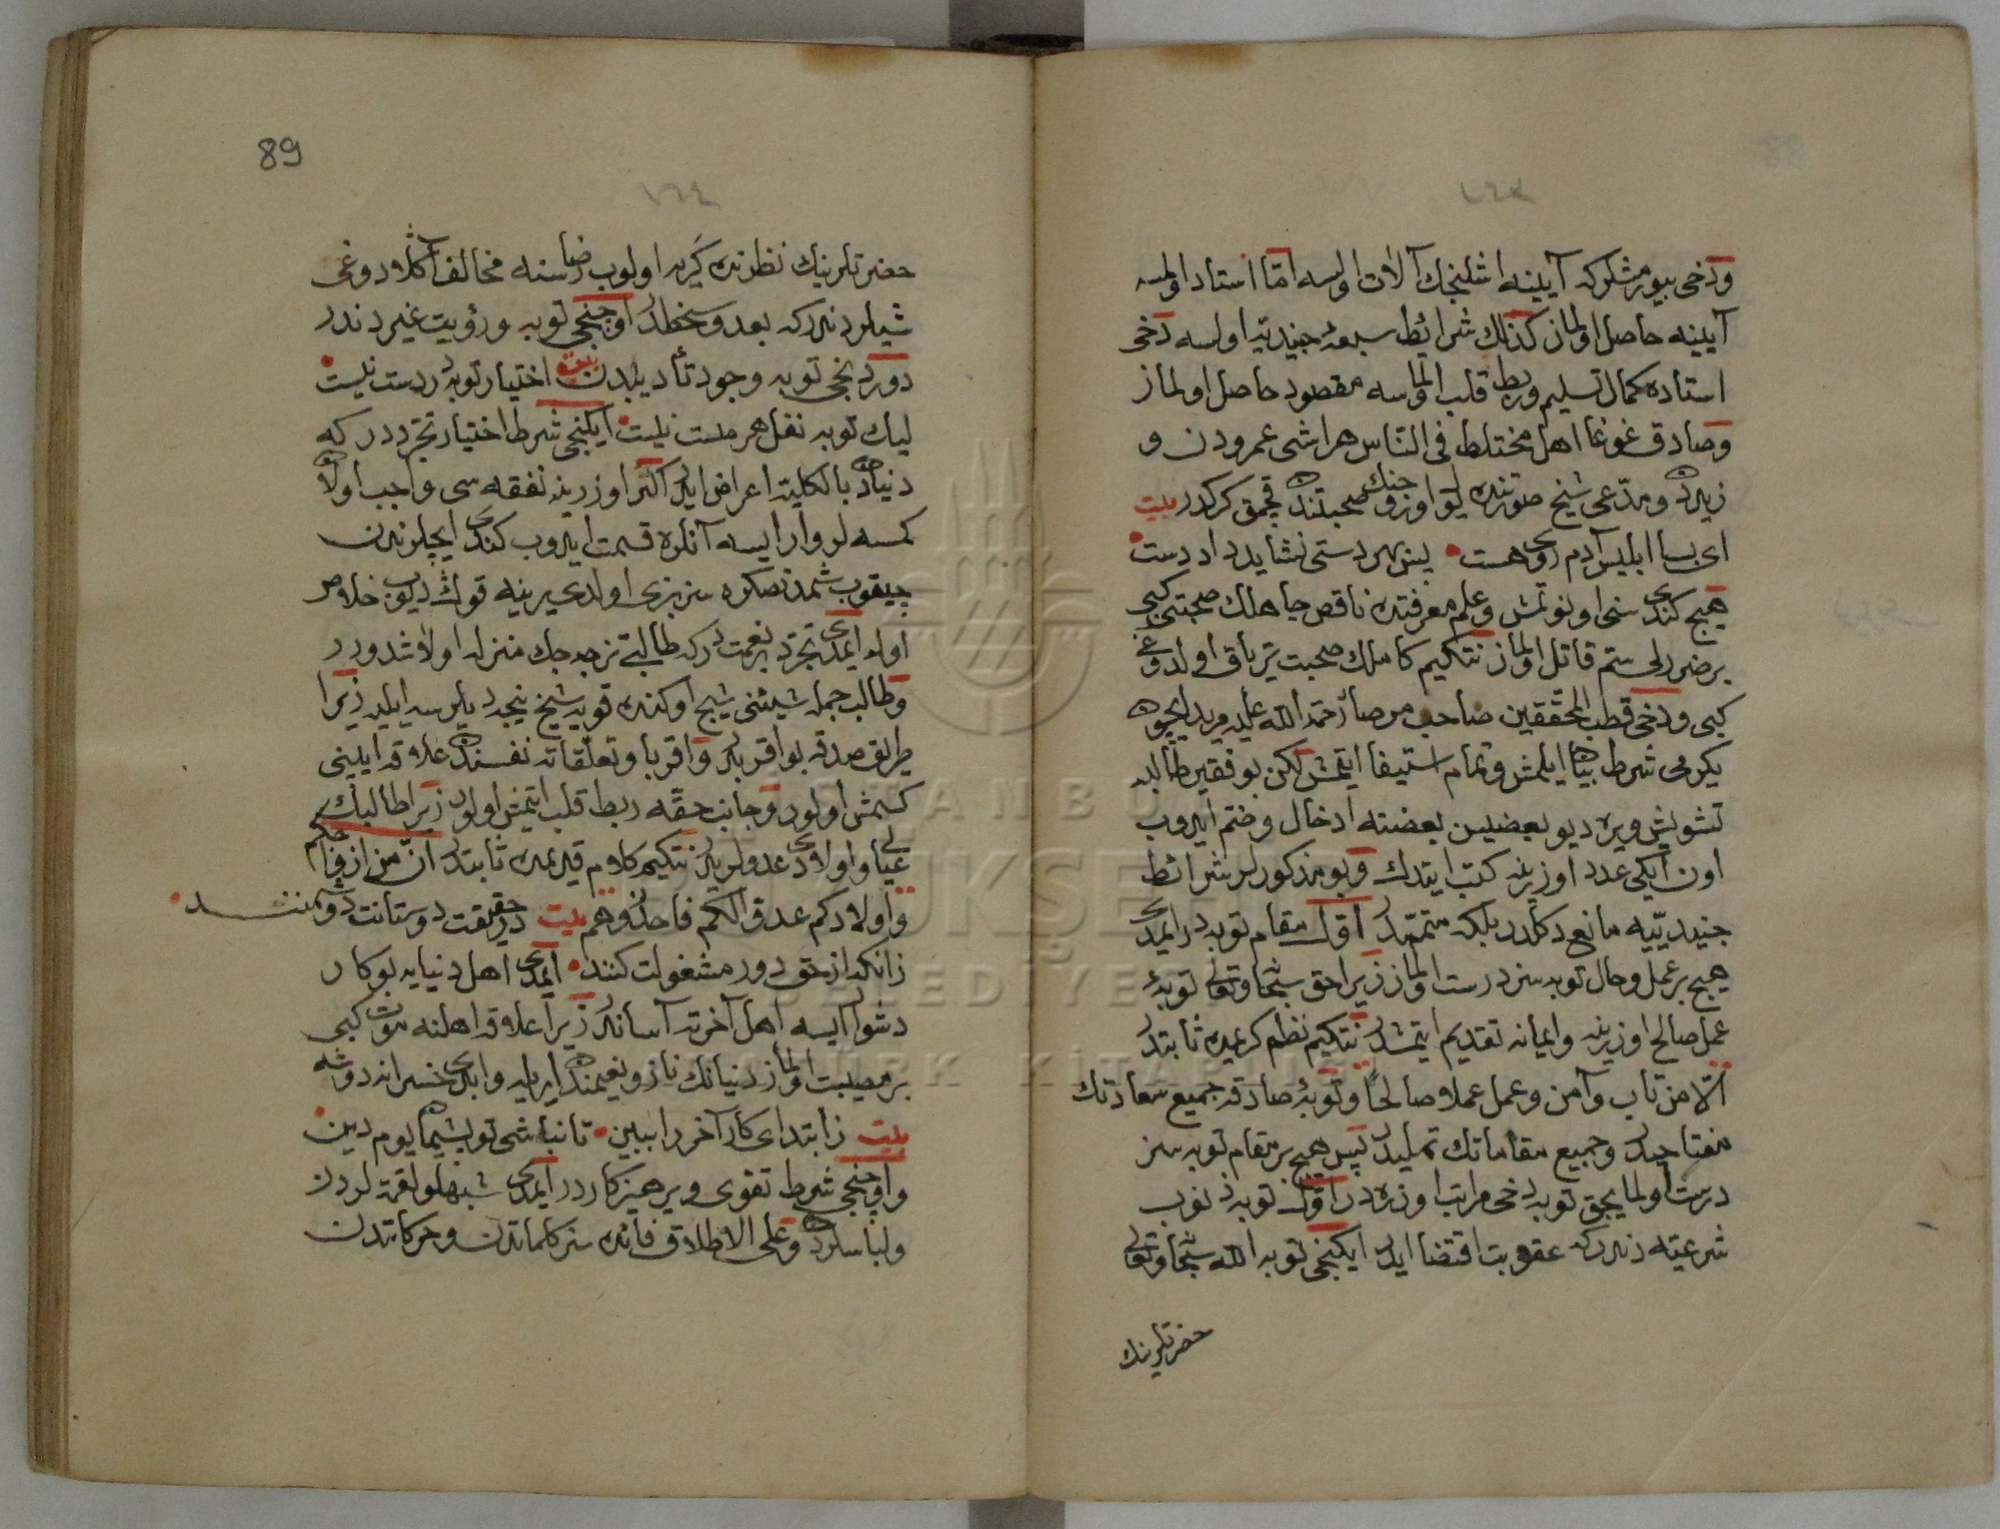 ودخی بیورمشلركه آیینه اشلنجك آلات اولسه امّا استاد اولمسه
آیینه حاصل اولماز كذلك شرائط سبعهٔ جنیدیّه اولسه دخی
استاده كمال تسلیم وربط قلب اولماسه مقصود حاصل اولماز
وصادق غوغا اهل مختلط فی الناس هراشی عمرودن و
زیددن ومدّعی شیخ صورتنده لوا وزو صحبتندن قچمق كركدر بیت
ای بسا ابلیس آدم روی هست پس بهر دستی نشاید داد دست
هیچ كندی سنی اونوتمش وعلم معرفتده ناقص جاهلك صحبتی كبی
بر ضررلی ستم قاتل اولماز نتكیم كاملك صحبت تریاق اولدوغی
كبی ودخی قطب المحققین صاحب مرصاد رحمة الله علیه مرید ایچون
یكرمی شرط بیان ایلمش وتمام استیفا ایتمش لكن بو فقیر طالبه
تشویش ویره دیو بعضیسن بعضنه ادخال وضم ایدوب
اون ایكی عدد اوزرینه كتب ایتدك وبو مذكورلر شرائط
جنیدیّیه مانع دكلدر بلكه متممدر اول مقام توبه در ایمدی
هیچ بر عمل وحال توبه سز درست اولماز زیرا حق سبحانه وتعالی توبهٔ
عمل صالح اوزرینه وایمانه تقدیم ایتمشدر نتكیم نظم كریمده ثابتدر
الّا من تاب وآمن وعمل عملا صالحاً وتوبهٔ صادقه جمیع سعادتك
مفتاحیدر وجمیع مقاماتك تملیدر پس هیچ بر مقام توبه سز
درست اولمایجق توبه دخی مراتب اوزره در اول توبه ذنوب
شرعیّه دندركه عقوبت اقتضا ایدر ایكنجی توبه الله سبحانه وتعالی
حضرتلرینك
89
١٦٤
حضرتلرینك نظرنده كریه اولوب رضاسنه مخالف آكلادوغی
شیلردندركه بعد وسخطدر اوچنجی توبه ورؤیت غیردندر
دوردنجی توبه وجود تأدیبدن بیت اختیار توبه دردست نیست
لیك توبه نقل هر مست نیست ایكنجی شرط اختیار تجرددركه
دنیادن بالكلیّه اعراض ایلر اكر اوزرینه نفقه سی واجب اولان
كمسه لر وار ایسه آنلره قسمت ایدوب كندی ایچلرندن
چیقوب شمدنصكره سز بزی اولدی یرینه قوك دیوب خلاص
اوله ایمدی تجرد بر نعمتدركه طالبی نزجه جك منزله اولاشدورر
وطالب جمله شیئنی شیخ اوكنده قویه شیخ نیجه دیلرسه ایلیه زیرا
طریق صدقه بو اقربدر واقربا وتعلقاته نفسنك علاقه ایلینی
كسمش اولور وجانب حقّه ربط قلب ایتمش اولور زیرا طالبك
عیالی واولادی عدولریدر نتكیم كلام قدیمده ثابتدر انّ من ازواجكم
واولادكم عدوّ الكم فاحذروهم بیت درحقیقت دوستانت دشمنند
زانكه از حق دور مشغولت كنند ایمدی اهل دنیایه بو كار
دشوار ایسه اهل آخرته آساندر زیرا علاقه اهلنه موت كبی
بر مصیبت اولماز دنیانك ناز ونعیمندن ایریلیه وابدی خسرانه دوشه
بیت زابتدای كار آخر را ببین تا نباشی تو پشیمان یوم دین
واوچنجی شرط تقوی وپرهیزكاردر ایمدی شبهلو لقمه لردن
ولباسلردن وعلی الاطلاق فائده سز كلماتدن وحركاتدن